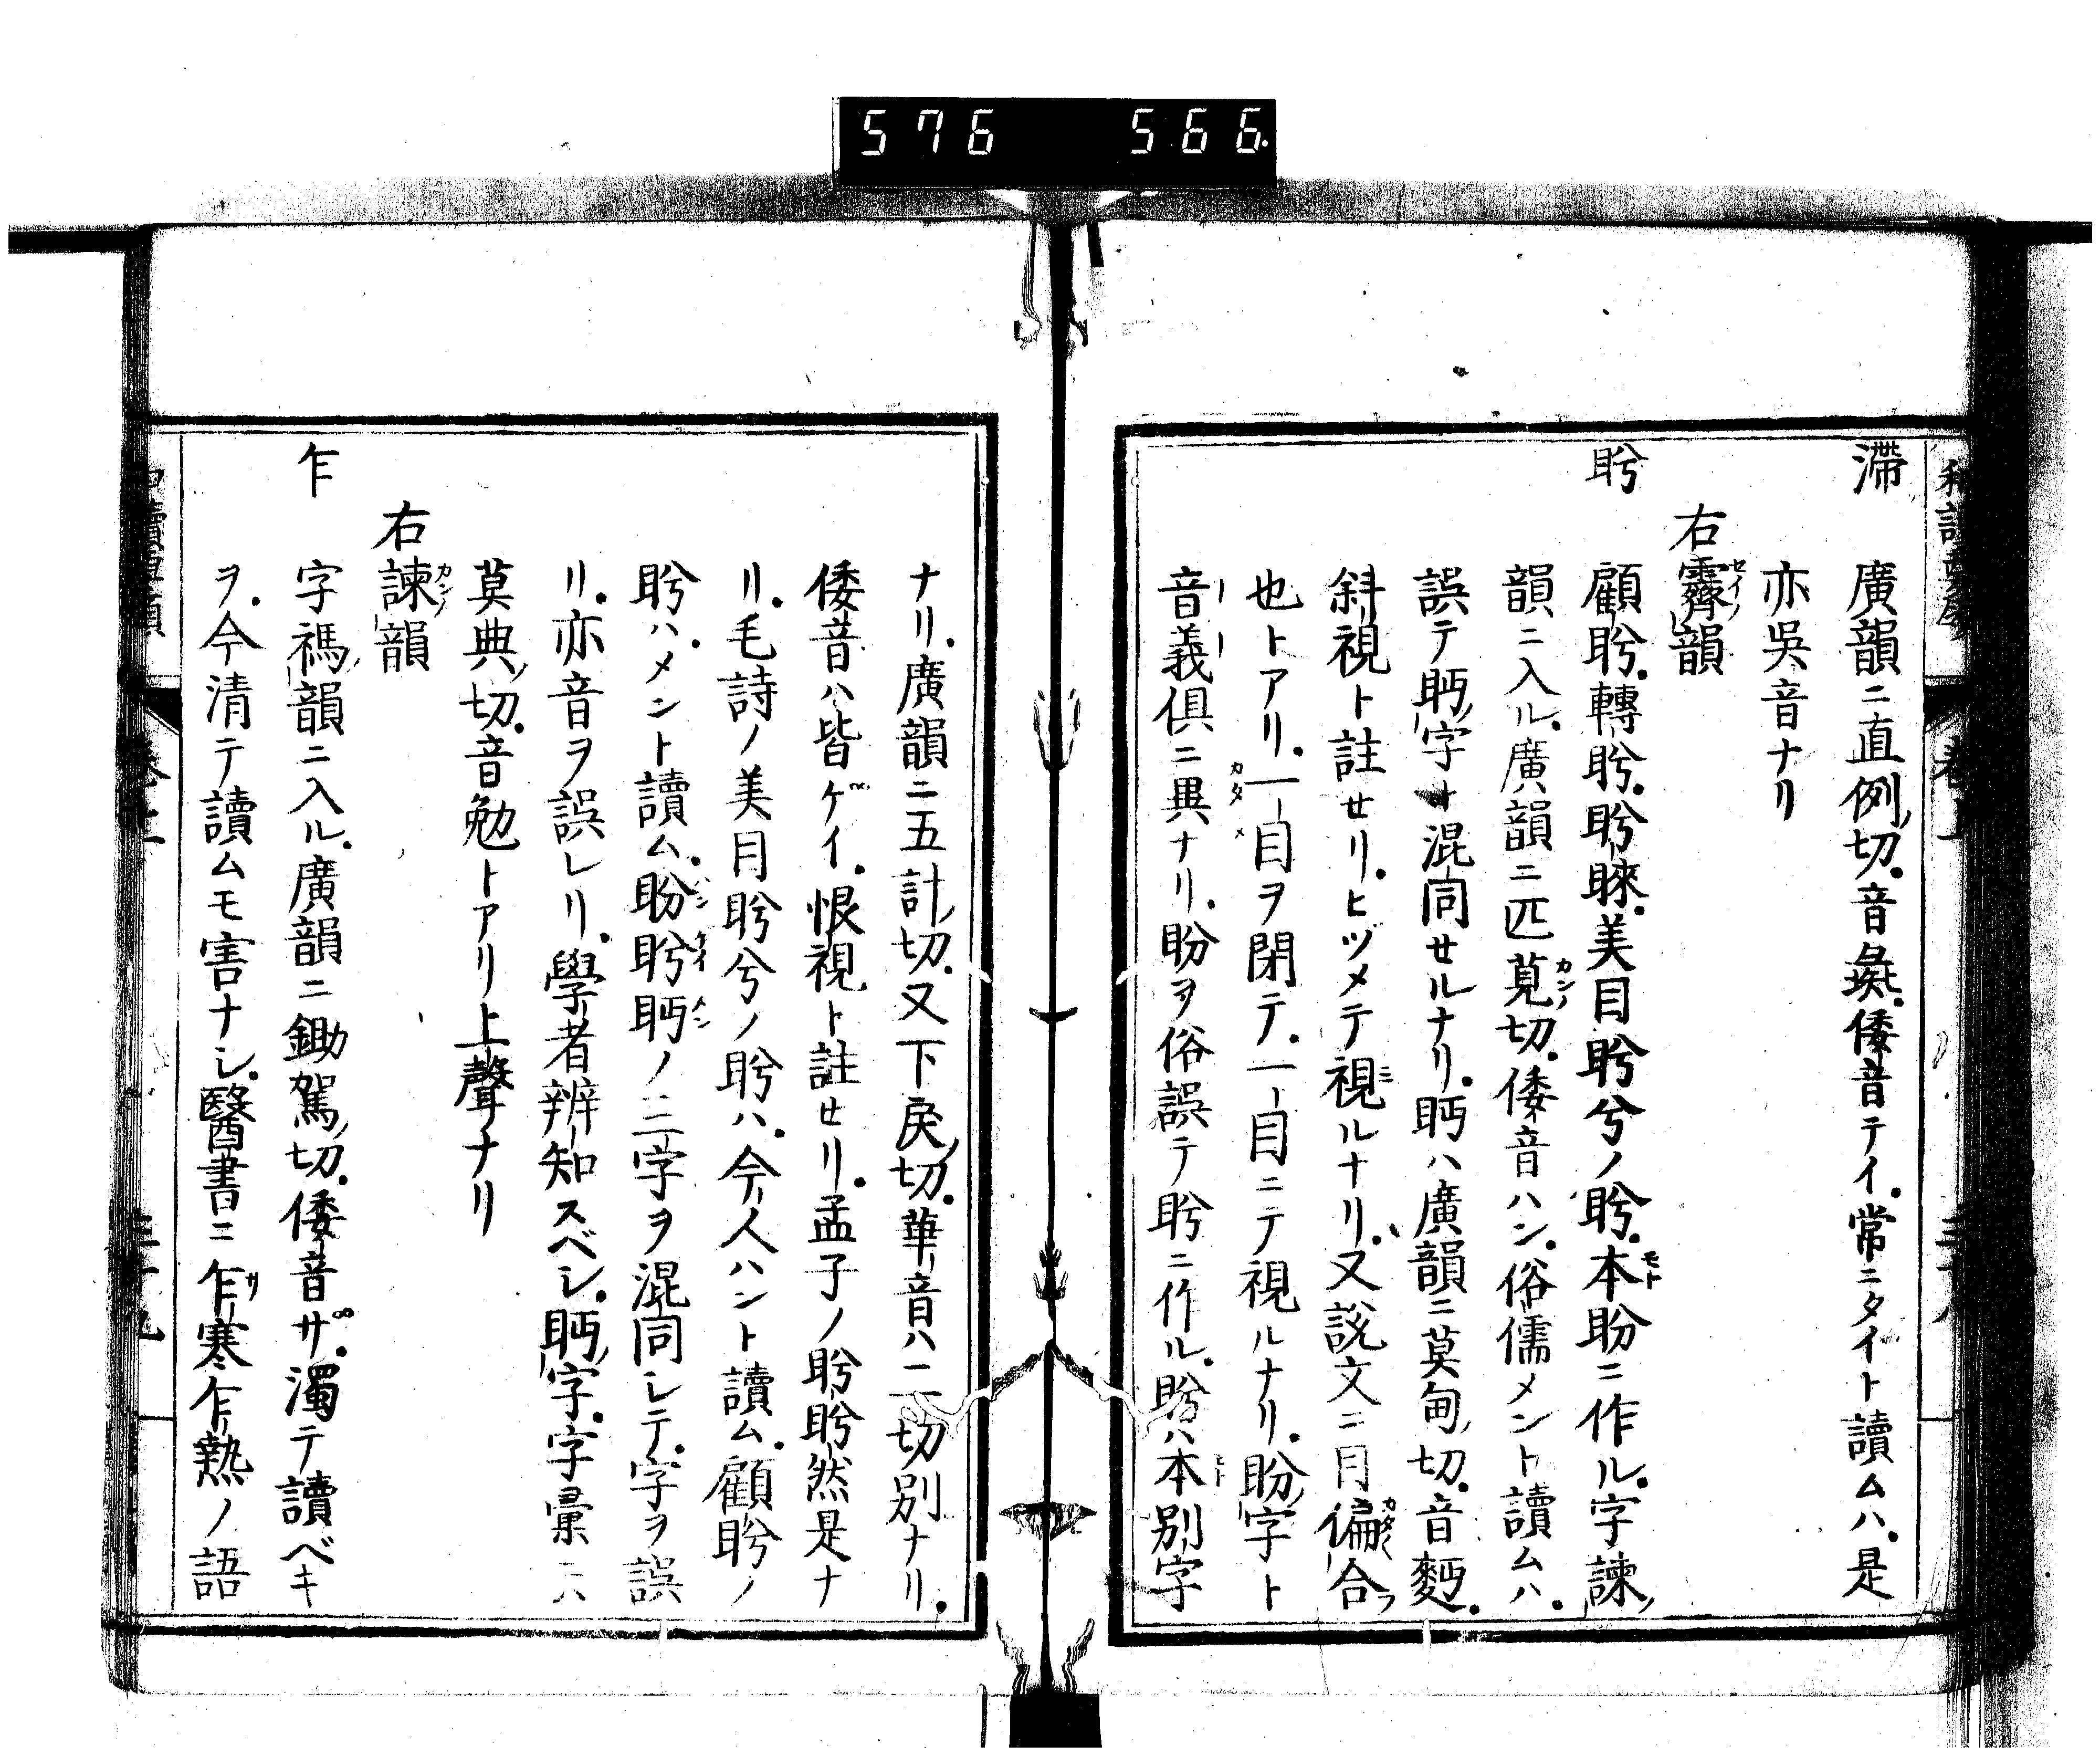 576 566
滯　廣韻ニ直例ノ切音彘倭音テイ常ニタイト讀ムハ是
亦吳音ナリ
右霽韻
盻　顧盻轉盻盻睞美目盻兮ノ盻本盼ニ作ル字諫ノ
韻ニ入ル廣韻ニ匹莧切倭音ハン俗儒メント讀ムハ
誤テ眄字ト混同セルナリ眄ハ廣韻ニ莫甸ノ切音麪
斜視ト註セリヒヅメテ視ルナリ又説文ニ目偏合
也トアリ一目ヲ閉テ一目ニテ視ルナリ盼字ト
音義俱ニ異ナリ盼ヲ俗誤テ盻ニ作ル盻ハ本別字
ナリ廣韻ニ五計ノ切又下戾ノ切華音ハ二切別ナリ
倭音ハ皆ゲイ恨視ト註セリ孟子ノ盻盻然是ナ
リ毛詩ノ美目盻兮ノ盻ハ今ノ人ハント讀ム顧盻ノ
盻ハメント讀ム盼盻眄ノ三字ヲ混同シテ字ヲ誤
リ亦音ヲ誤レリ學者辨知スベシ眄字字彙ニハ
莫典ノ切音勉トアリ上聲ナリ
右諫韻
乍　字禡ノ韻ニ入ル廣韻ニ鋤駕ノ切倭音ザ濁テ讀ベキ
ヲ今清テ讀ムモ害ナシ醫書ニ乍寒乍熱ノ語